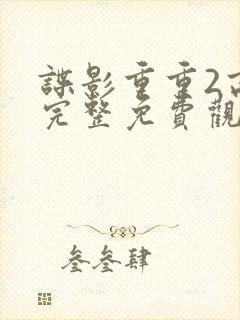 諜影重重2
完整免費觀
叁叁肆